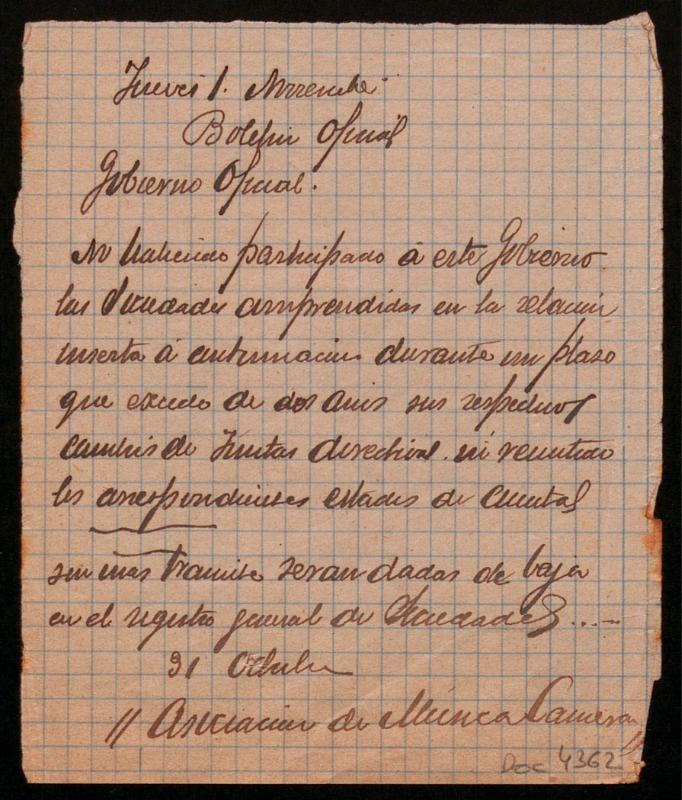 Jueves 1. Noviembre
Boletin Oficial
Gobierno Oficial.
No habiendo participado á este Gobierno
las Sociedades comprendidas en la relacion
inserta á continuacion durante un plazo
que excede de dos anos sus respectivos
cambios de Juntas directivas ni remitido
los correspondientes estados de cuentas
sin mas tramite seran dadas de baja
en el registro general de Sociedades....
31 Octubre
" Asociacion de Música Camera "
Doc 4362